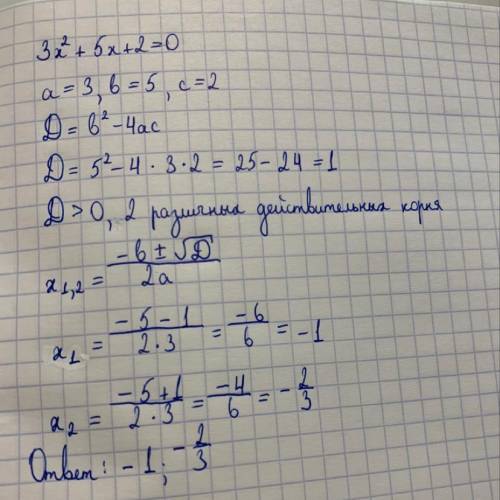 3x² + 5x + 2 = 0
a = 3, b = 5, c = 2
D = b² - 4ac
D = 5² - 4 · 3 · 2 = 25 - 24 = 1
D > 0, 2 различных действительных корня
x₁,₂ = (-b ± √D) / 2a
x₁ = (-5 - 1) / (2 · 3) = -6/6 = -1
x₂ = (-5 + 1) / (2 · 3) = -4/6 = -2/3
Ответ: -1; -2/3